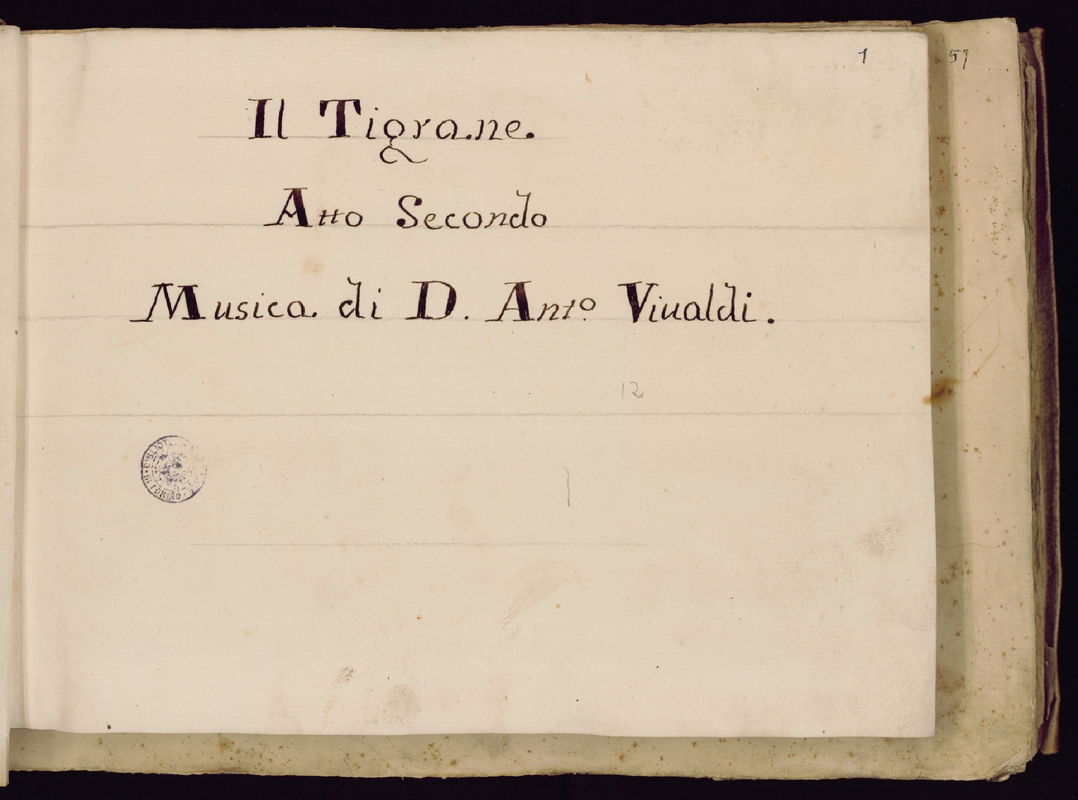 1
57
Il Tigrane.
Atto Secondo
Musica di D. Antº. Viualdi.
12
DI TORINO